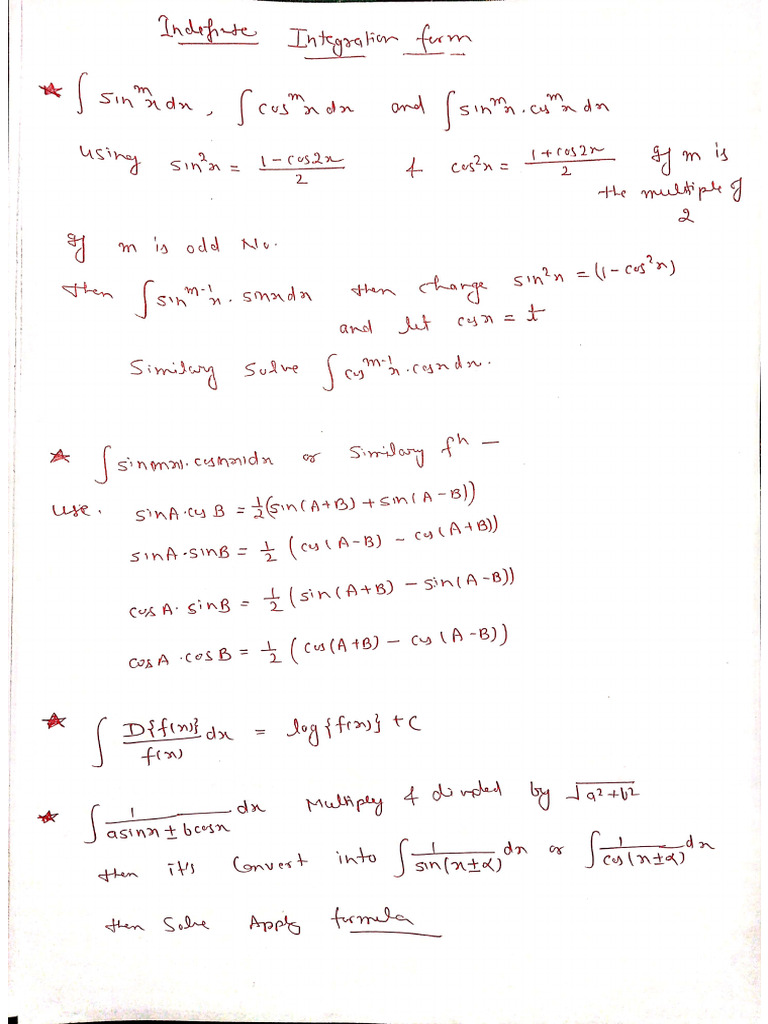 Indefinite Integration form
★ ∫ sin^m x dx, ∫ cos^m x dx and ∫ sin^m x. cos^m x dx
using sin²x = (1 - cos2x)/2 & cos²x = (1 + cos2x)/2 If m is
the multiple of
2
If m is odd No.
then ∫ sin^(m-1) x. sinx dx then change sin²x = (1 - cos²x)
and let cosx = t
Similary Solve ∫ cos^(m-1) x. cosx dx.
★ ∫ sinmx. cosnx dx or Similary fn —
use. sinA.cosB = 1/2 (sin(A+B) + sin(A-B))
sinA.sinB = 1/2 (cos(A-B) - cos(A+B))
cosA. sinB = 1/2 (sin(A+B) - sin(A-B))
cosA.cosB = 1/2 (cos(A+B) - cos(A-B))
★ ∫ D{f(x)}/f(x) dx = log{f(x)} + C
★ ∫ 1/(asinx ± bcosx) dx Multiply & divided by √(a²+b²)
then it's Convert into ∫ 1/sin(x±α) dx or ∫ 1/cos(x±α) dx
then Solve Apply formula